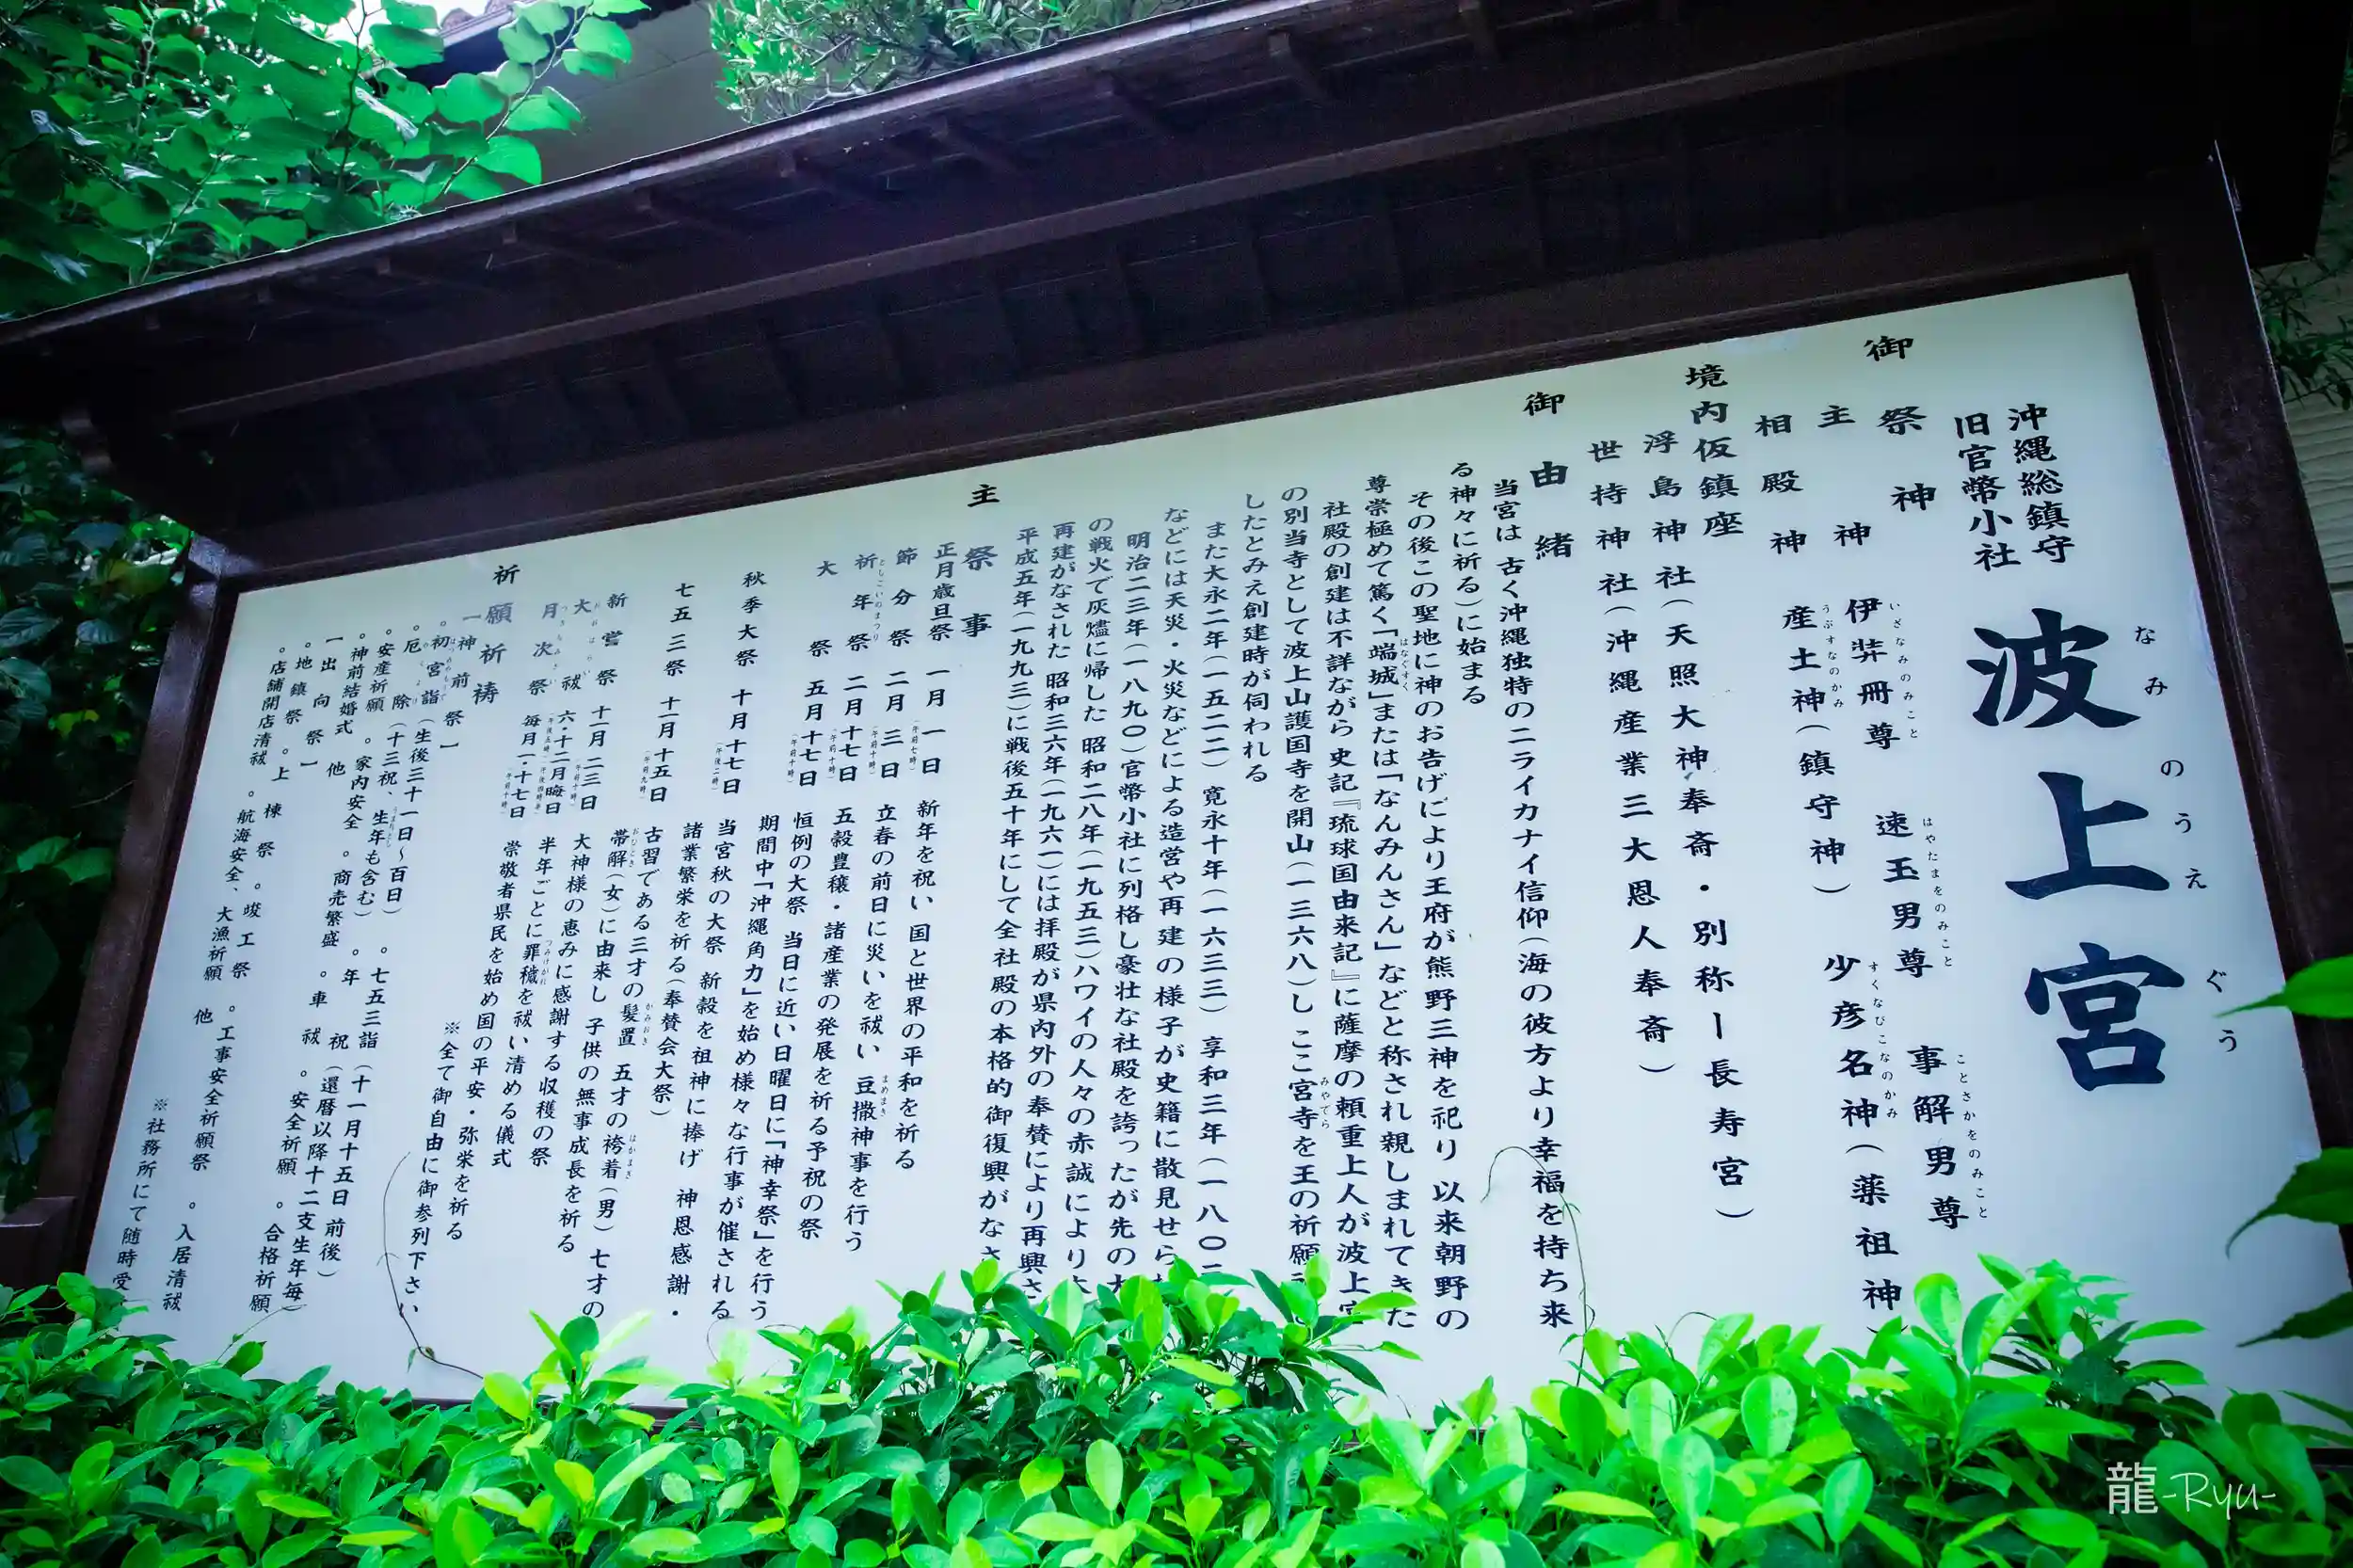 沖縄総鎮守
旧官幣小社
波上宮
なみのうえぐう
御祭神
主神 伊弉冊尊 速玉男尊 事解男尊
いざなみのみこと はやたまをのみこと ことさかをのみこと
相殿神 産土神(鎮守神) 少彦名神(薬祖神)
うぶすなのかみ すくなびこなのかみ
境内仮鎮座
浮島神社(天照大神奉斎・別称ー長寿宮)
世持神社(沖縄産業三大恩人奉斎)
御由緒
当宮は 古く沖縄独特のニライカナイ信仰(海の彼方より幸福を持ち来
る神々に祈る)に始まる
その後この聖地に神のお告げにより王府が熊野三神を祀り 以来朝野の
尊崇極めて篤く「端城」または「なんみんさん」などと称され親しまれてきた
はなぐすく
社殿の創建は不詳ながら 史記『琉球国由来記』に薩摩の頼重上人が波上宮
の別当寺として波上山護国寺を開山(一三六八)し ここ宮寺を王の祈願
みやでら
したとみえ創建時が伺われる
また大永二年(一五二二) 寛永十年(一六三三) 享和三年(一八〇
などには天災・火災などによる造営や再建の様子が史籍に散見せら
明治二三年(一八九〇)官幣小社に列格し豪壮な社殿を誇ったが先の大
の戦火で灰燼に帰した 昭和二八年(一九五三)ハワイの人々の赤誠により
再建がなされた 昭和三六年(一九六一)には拝殿が県内外の奉賛により再興さ
平成五年(一九九三)に戦後五十年にして全社殿の本格的御復興がなさ
主祭事
正月歳旦祭 一月一日(午前七時) 新年を祝い 国と世界の平和を祈る
節分祭 二月三日(午前十時) 立春の前日に災いを祓い 豆撒神事を行う
まめまき
祈年祭 二月十七日(午前十時) 五穀豊穣・諸産業の発展を祈る予祝の祭
としごいのまつり
大祭 五月十七日(午前十時) 恒例の大祭 当日に近い日曜日に「神幸祭」を行う
期間中「沖縄角力」を始め様々な行事が催される
秋季大祭 十月十七日(午後二時) 当宮秋の大祭 新穀を祖神に捧げ 神恩感謝・
諸業繁栄を祈る(奉賛会大祭)
七五三祭 十一月十五日(午前九時) 古習である三才の髪置 五才の袴着(男) 七才の
かみおき はかまぎ
帯解(女)に由来し 子供の無事成長を祈る
おびとき
新嘗祭 十一月二三日(午前十時) 大神様の恵みに感謝する収穫の祭
大祓 六・十二月晦日 半年ごとに罪穢を祓い清める儀式
おおはらい つみけがれ
月次祭 毎月一・十七日(午前十時) 崇敬者県民を始め国の平安・弥栄を祈る
つきなみさい
※全て御自由に御参列下さい
祈願祈祷
一神前祭」
。初宮詣(生後三十一日〜百日) 。七五三詣(十一月十五日前後)
。厄除(十三祝、生年も含む) 。年祝(還暦以降十二支生年毎)
。安産祈願 。家内安全 。商売繁盛 。車祓 。安全祈願 。合格祈願
。神前結婚式 他
一出向祭」
。地鎮祭 。上棟祭 。竣工祭 。工事安全祈願祭 。入居清祓
。店舗開店清祓 。航海安全、大漁祈願 他
※社務所にて随時受
龍-Ryu-